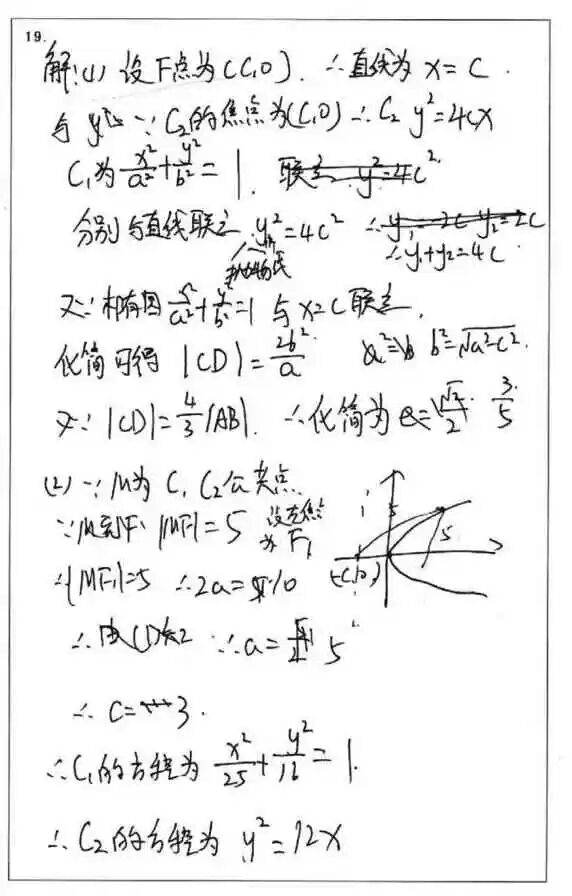 19.
解:(1) 设F点为(C,0). ∴直线为 x=C.
与 ∵C₂的焦点为(C,0) ∴C₂ y²=4cx
C₁为 x²/a²+y²/b²=1. 联立 y²=4c².
分别与直线联立 y²=4c² ∴y₁=-2c y₂=2c
抛物线 ∴y₁+y₂=4c.
又∵ x²/a²+y²/b²=1 与 x=c 联立.
化简可得 |CD|=2b²/a b²=√a²-c².
又∵ |CD|=4/3|AB|. ∴化简为 e= 3/5
(2) ∵M为 C₁ C₂公共点
∵M到F |MF|=5 设左焦点
为 F₁
∴|MF₁|=5 ∴2a=10
5
(-C,0)
∴由(1) ∴a= 5
∴ C= 3.
∴C₁的方程为 x²/25+y²/16=1.
∴C₂的方程为 y²=12x